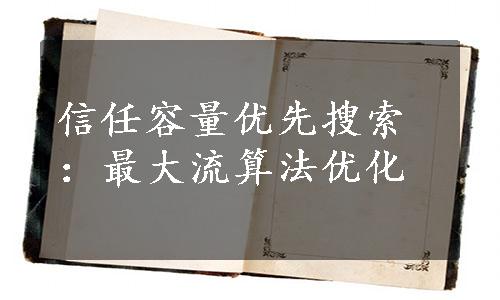 信任容量优先搜索
：最大流算法优化